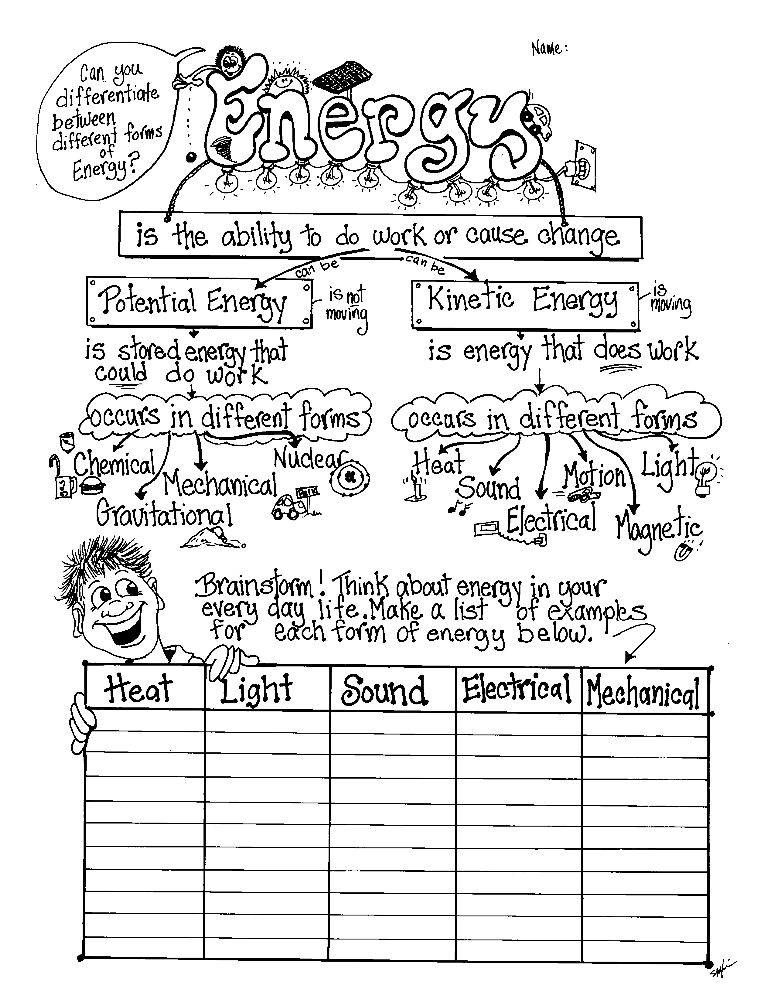 Name:
Can you
differentiate
between
different forms
of
Energy?
Energy
is the ability to do work or cause change
can be
can be
Potential Energy
is not
moving
Kinetic Energy
is
moving
is stored energy that
could do work
is energy that does work
occurs in different forms
occurs in different forms
Chemical
Nuclear
Mechanical
Gravitational
Heat
Light
Motion
Sound
Electrical
Magnetic
Brainstorm! Think about energy in your
every day life. Make a list of examples
for each form of energy below.
Heat Light Sound Electrical Mechanical